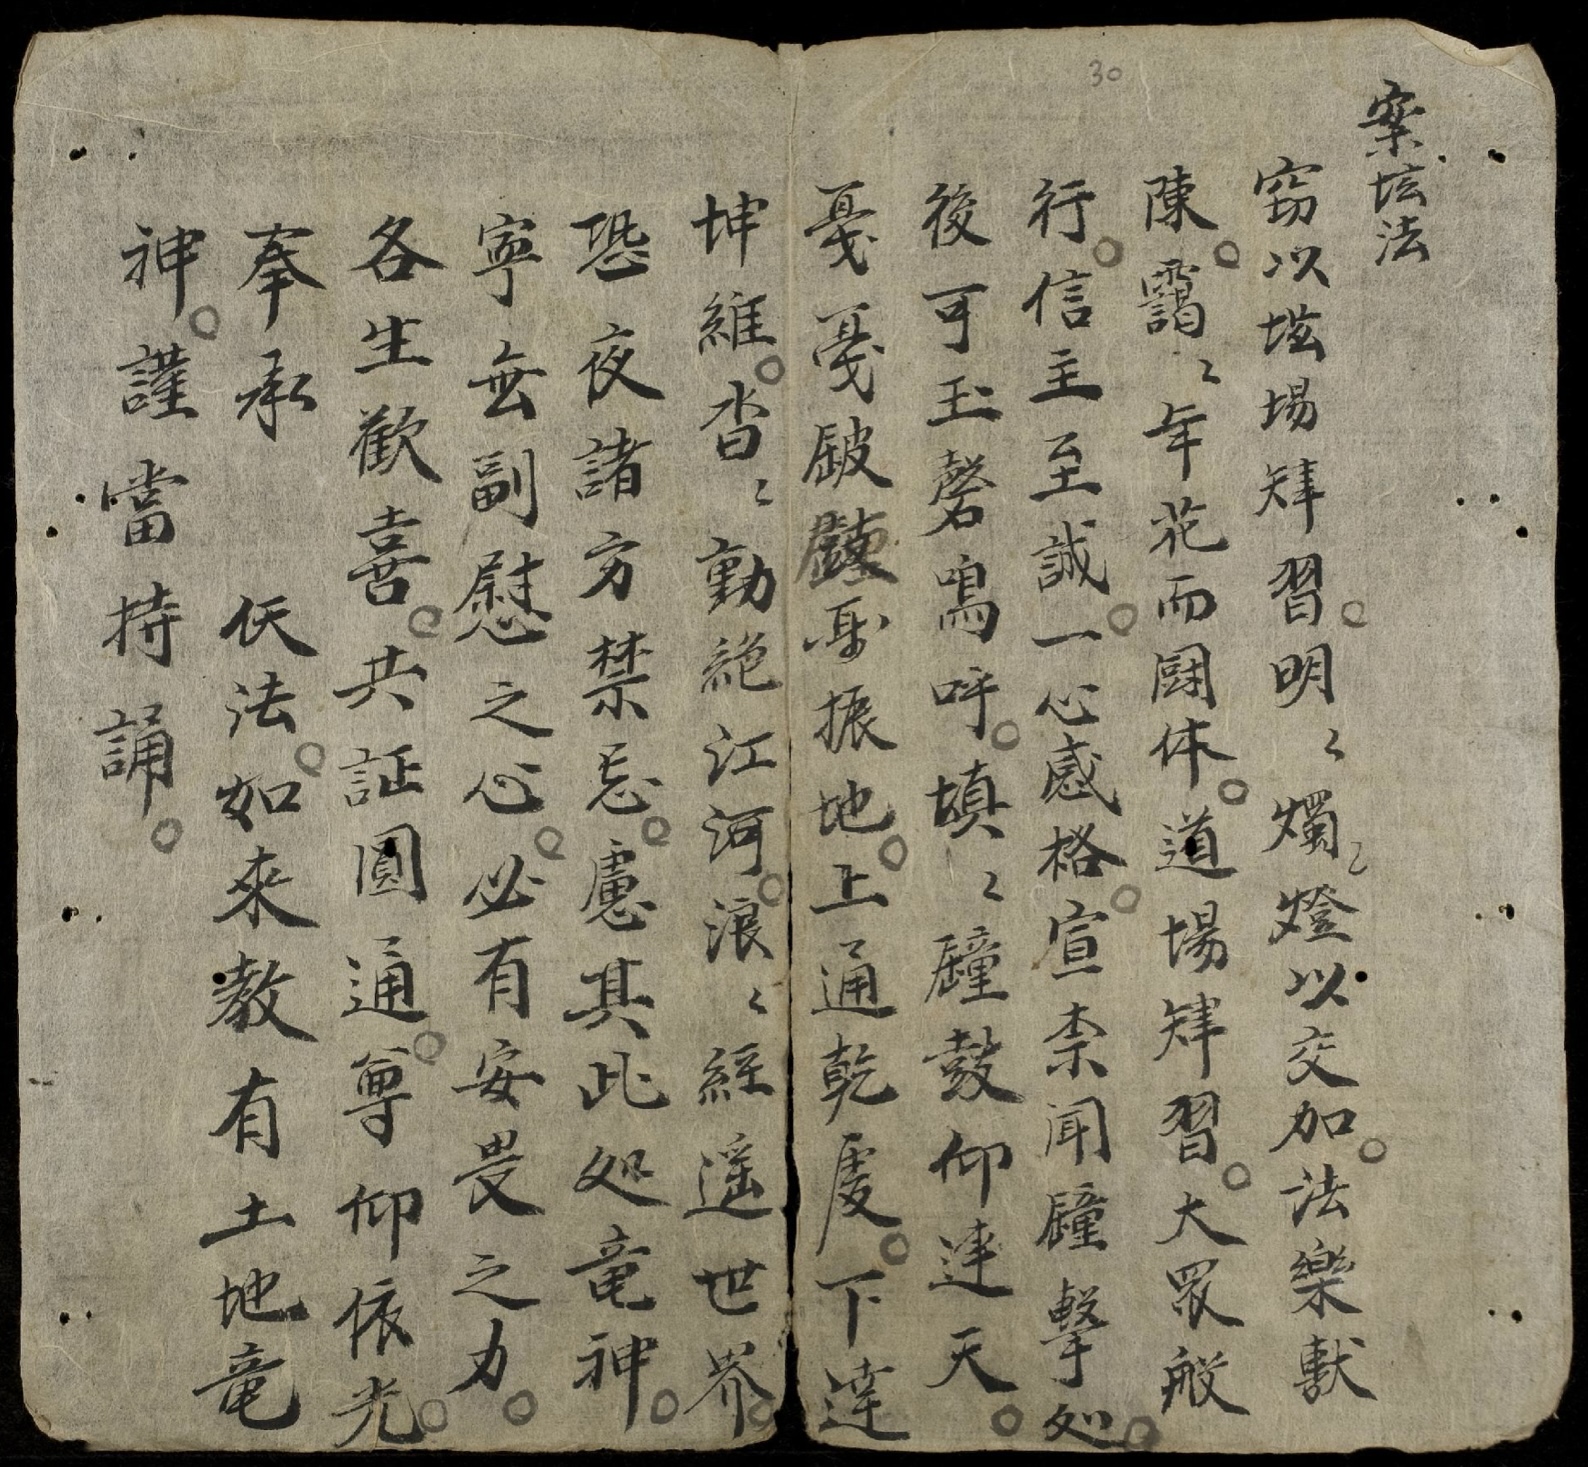 30
案坛法
窃以坛場肄習。明〻燭〻燈以交加。法樂献
陳。靄〻年花而闘体。道場肄習。大眾般
行。信主至誠。一心感格。宣柰闻𨻶擊処。
後可玉磬鳴呼。填〻鼓仰達天。
戛戛振地。上通乾度。下達
坤維。沓〻動絶江河。浪〻經遥世界。
恐夜諸方禁忌。慮其此処竜神。
寧無副慰之心。必有安畏之力。
各生歡喜。共証圓通。尊仰依光。
奉承 仸法。如來教有土地竜
神。謹當持誦。